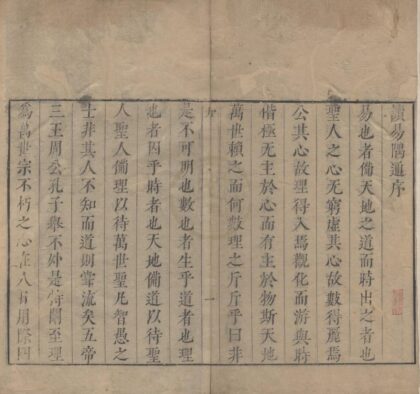 讀易隅通序
易也者備天地之道而時出之者也
聖人之心无窮虛其心故數得麗焉
公其心故理得入焉觀化而游與時
偕極无主於心而有主於物斯天地
萬世賴之而何數理之斤斤乎曰非
序 一
是不可明也數也者生乎道者也理
也者因乎時者也天地備道以待聖
人聖人備理以待萬世聖凡智愚之
士非其人不知而道則常流矣五帝
三王周公孔子舉不外是時剛至理
為萬世宗不朽之心在八首用際因